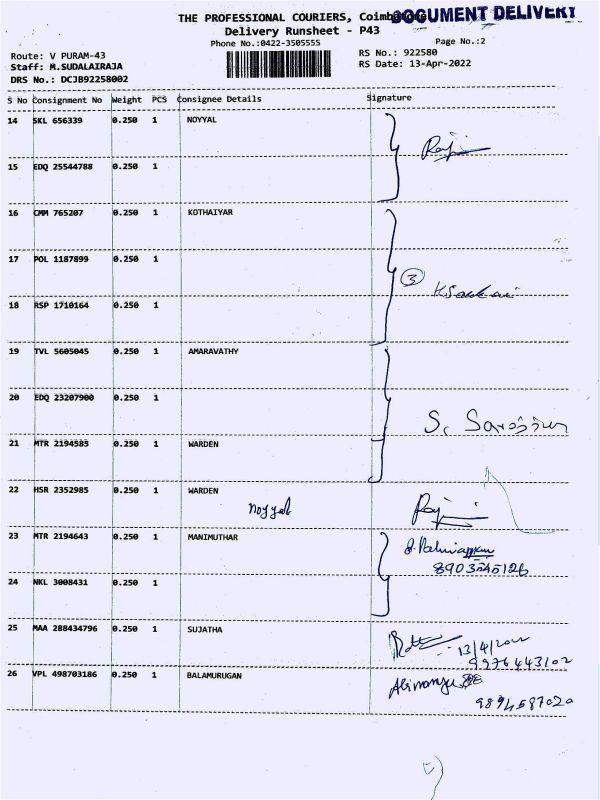 THE PROFESSIONAL COURIERS, DOCUMENT DELIVERY
Delivery Runsheet - P43
Phone No.:0422-3505555
Page No.:2
Route: V PURAM-43
Staff: M.SUDALAIRAJA
DRS No.: DCJB92258002
RS No.: 922580
RS Date: 13-Apr-2022
S No Consignment No Weight PCS Consignee Details Signature
14 SKL 656339 0.250 1 NOYYAL
15 EDQ 25544788 0.250 1
16 CMM 765207 0.250 1 KOTHAIYAR
17 POL 1187899 0.250 1
3
18 RSP 1710164 0.250 1
19 TVL 5605045 0.250 1 AMARAVATHY
20 EDQ 23207900 0.250 1
21 MTR 2194585 0.250 1 WARDEN
22 HSR 2352985 0.250 1 WARDEN
Noyyal
23 MTR 2194643 0.250 1 MANIMUTHAR
24 NKL 3008431 0.250 1
25 MAA 288434796 0.250 1 SUJATHA
13/4/2022
9976443102
26 VPL 498703186 0.250 1 BALAMURUGAN
9894587020